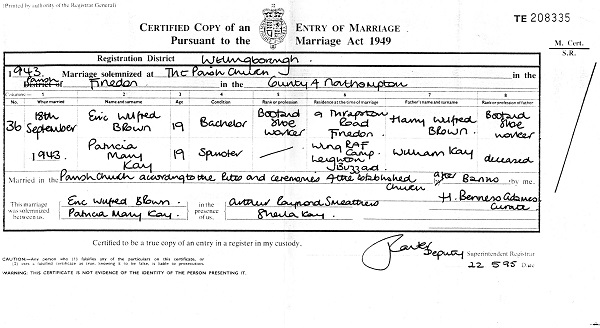 (Printed by authority of the Registrar General)
CERTIFIED COPY of an ENTRY OF MARRIAGE
Pursuant to the Marriage Act 1949
TE 208335
M. Cert.
S.R.
Registration District Wellingborough
1943. Marriage solemnized at The Parish Church in the
Parish
District of Finedon in the County of Northampton
Columns:— 1 2 3 4 5 6 7 8
No. When married Name and surname Age Condition Rank or profession Residence at the time of marriage Father's name and surname Rank or profession of father
36 18th September 1943. Eric Wilfred Brown 19 Bachelor Boot and Shoe worker 9 Thrapston Road Finedon. Harry Wilfred Brown. Boot and Shoe worker
Patricia Mary Kay 19 Spinster — Wing RAF Camp. Leighton Buzzard. William Kay deceased
Married in the Parish Church according to the Rites and Ceremonies of the Established Church after Banns by me,
This marriage was solemnized between us, Eric Wilfred Brown. Patricia Mary Kay. in the presence of us, Arthur Raymond Smeathers Sheila Kay. H. Benness Adames Curate
Certified to be a true copy of an entry in a register in my custody.
Deputy Superintendent Registrar
22.5.95 Date
CAUTION:—Any person who (1) falsifies any of the particulars on this certificate, or
(2) uses a falsified certificate as true, knowing it to be false, is liable to prosecution.
WARNING: THIS CERTIFICATE IS NOT EVIDENCE OF THE IDENTITY OF THE PERSON PRESENTING IT.